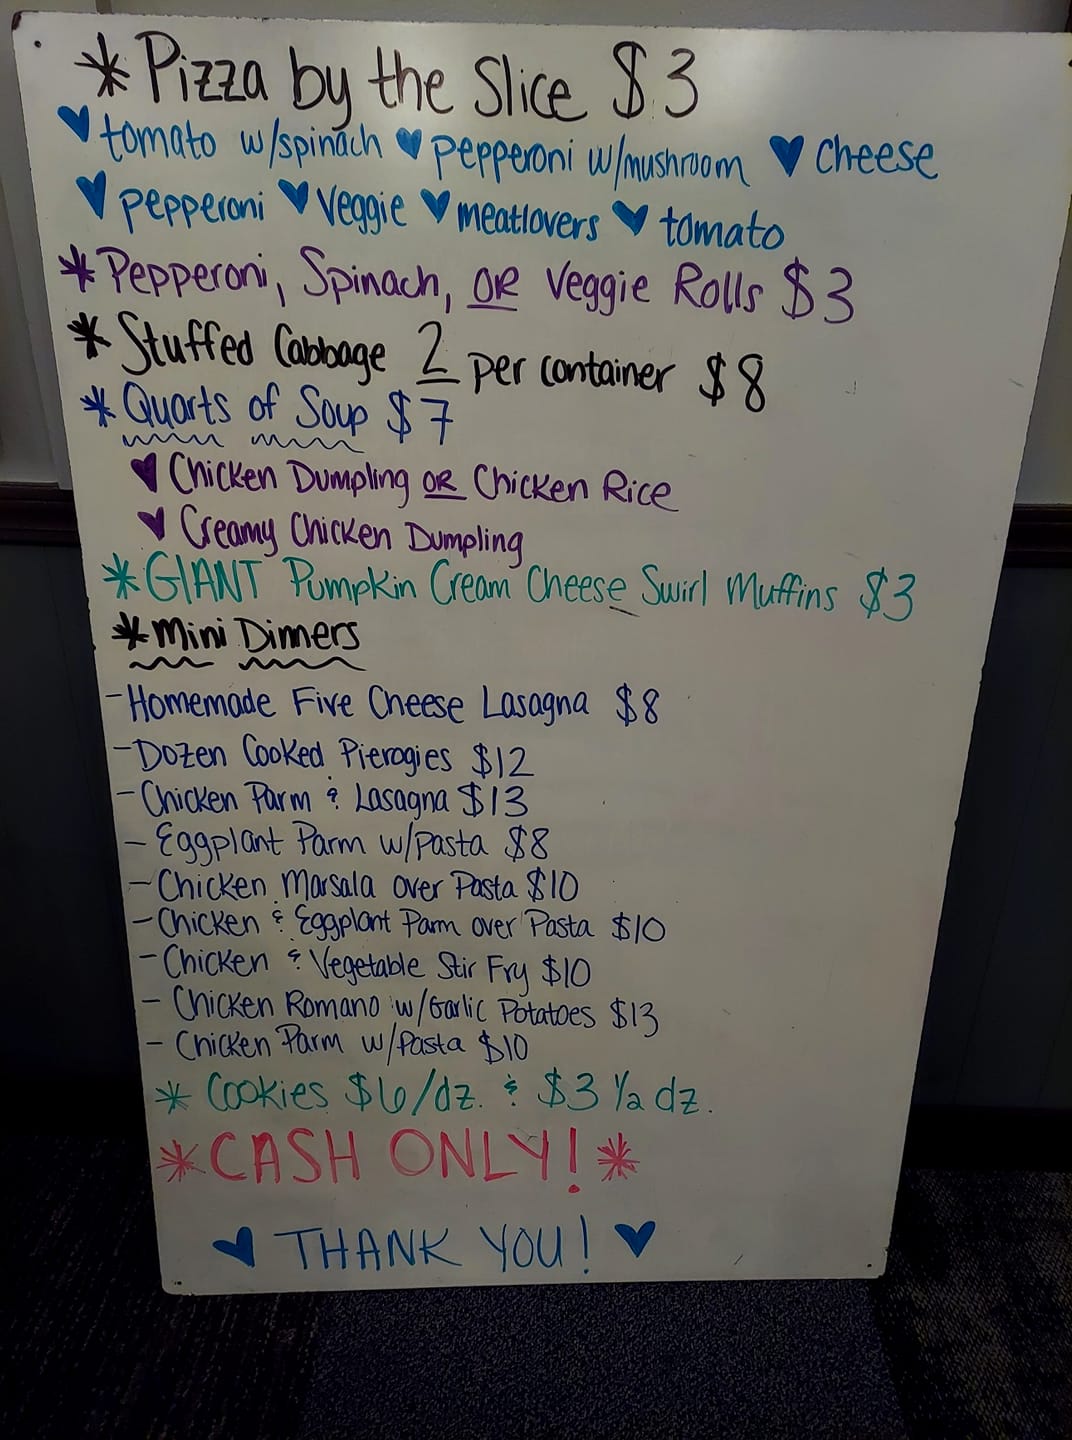 * Pizza by the Slice $3
♥ tomato w/spinach ♥ pepperoni w/mushroom ♥ cheese
♥ pepperoni ♥ veggie ♥ meatlovers ♥ tomato
* Pepperoni, Spinach, OR Veggie Rolls $3
* Stuffed Cabbage 2 per container $8
* Quarts of Soup $7
♥ Chicken Dumpling OR Chicken Rice
♥ Creamy Chicken Dumpling
* GIANT Pumpkin Cream Cheese Swirl Muffins $3
* Mini Dinners
- Homemade Five Cheese Lasagna $8
- Dozen Cooked Pierogies $12
- Chicken Parm & Lasagna $13
- Eggplant Parm w/pasta $8
- Chicken Marsala over Pasta $10
- Chicken & Eggplant Parm over Pasta $10
- Chicken & Vegetable Stir Fry $10
- Chicken Romano w/Garlic Potatoes $13
- Chicken Parm w/Pasta $10
* Cookies $6/dz. & $3 1/2 dz.
* CASH ONLY! *
♥ THANK YOU! ♥